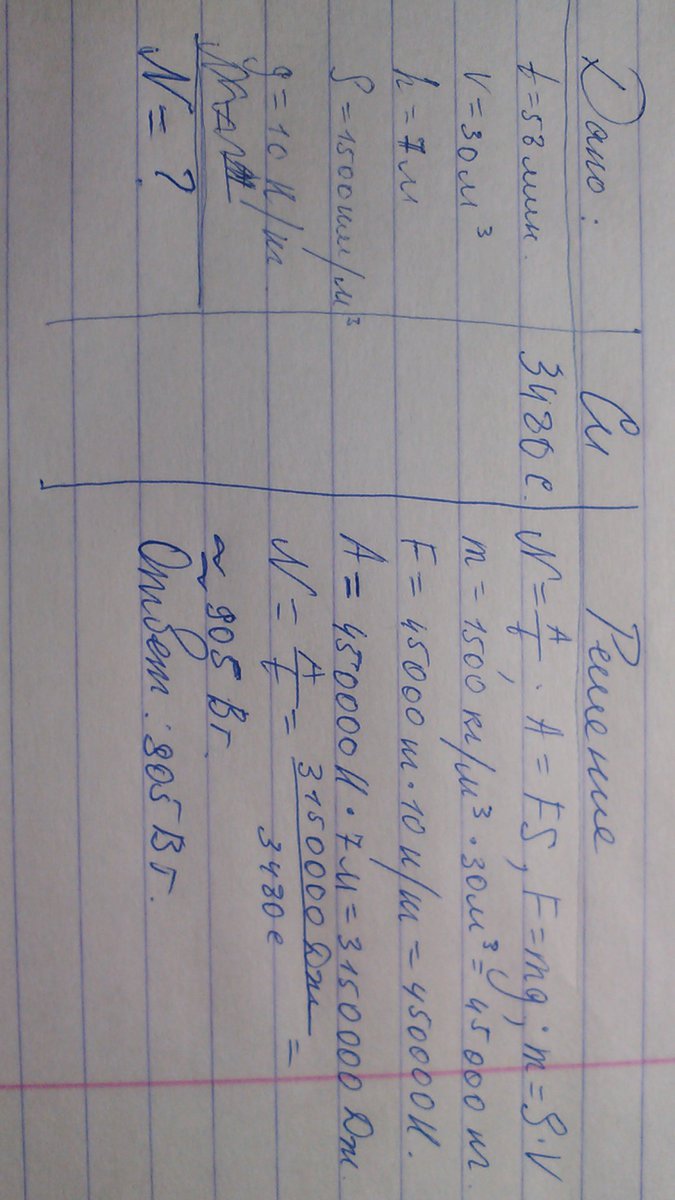 Дано:
t = 58 мин.
V = 30 м³
h = 7 м
ρ = 1500 кг/м³
g = 10 Н/кг
N = ?
Си
3480 с.
Решение
N = A/t, A = FS, F = mg; m = ρ·V
m = 1500 кг/м³ · 30 м³ = 45000 кг.
F = 45000 кг · 10 Н/кг = 450000 Н.
A = 450000 Н · 7 м = 3150000 Дж.
N = A/t = 3150000 Дж/3480 с =
≈ 905 Вт.
Ответ: 905 Вт.